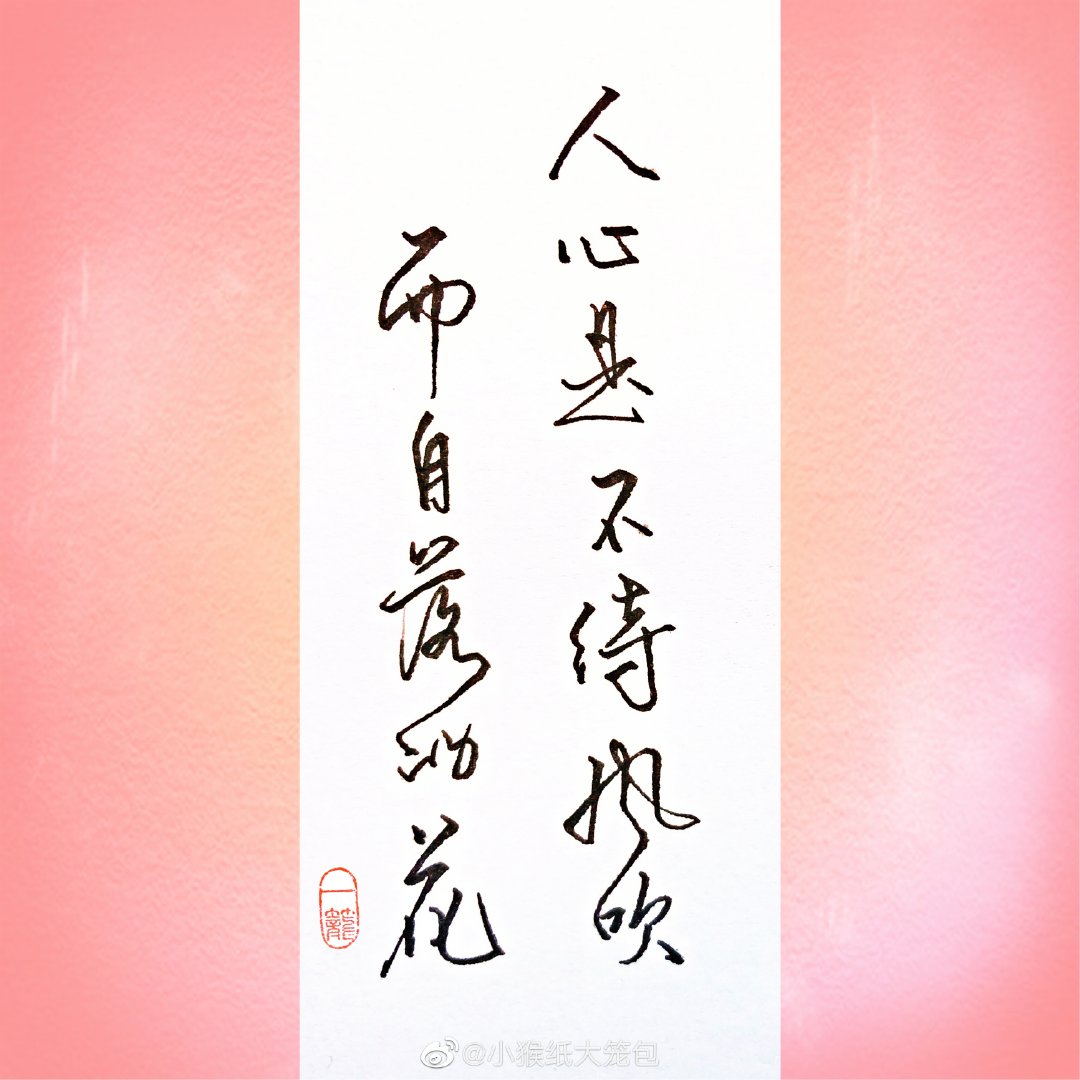 人心是不待风吹
而自落的花
一籠
@小猴纸大笼包